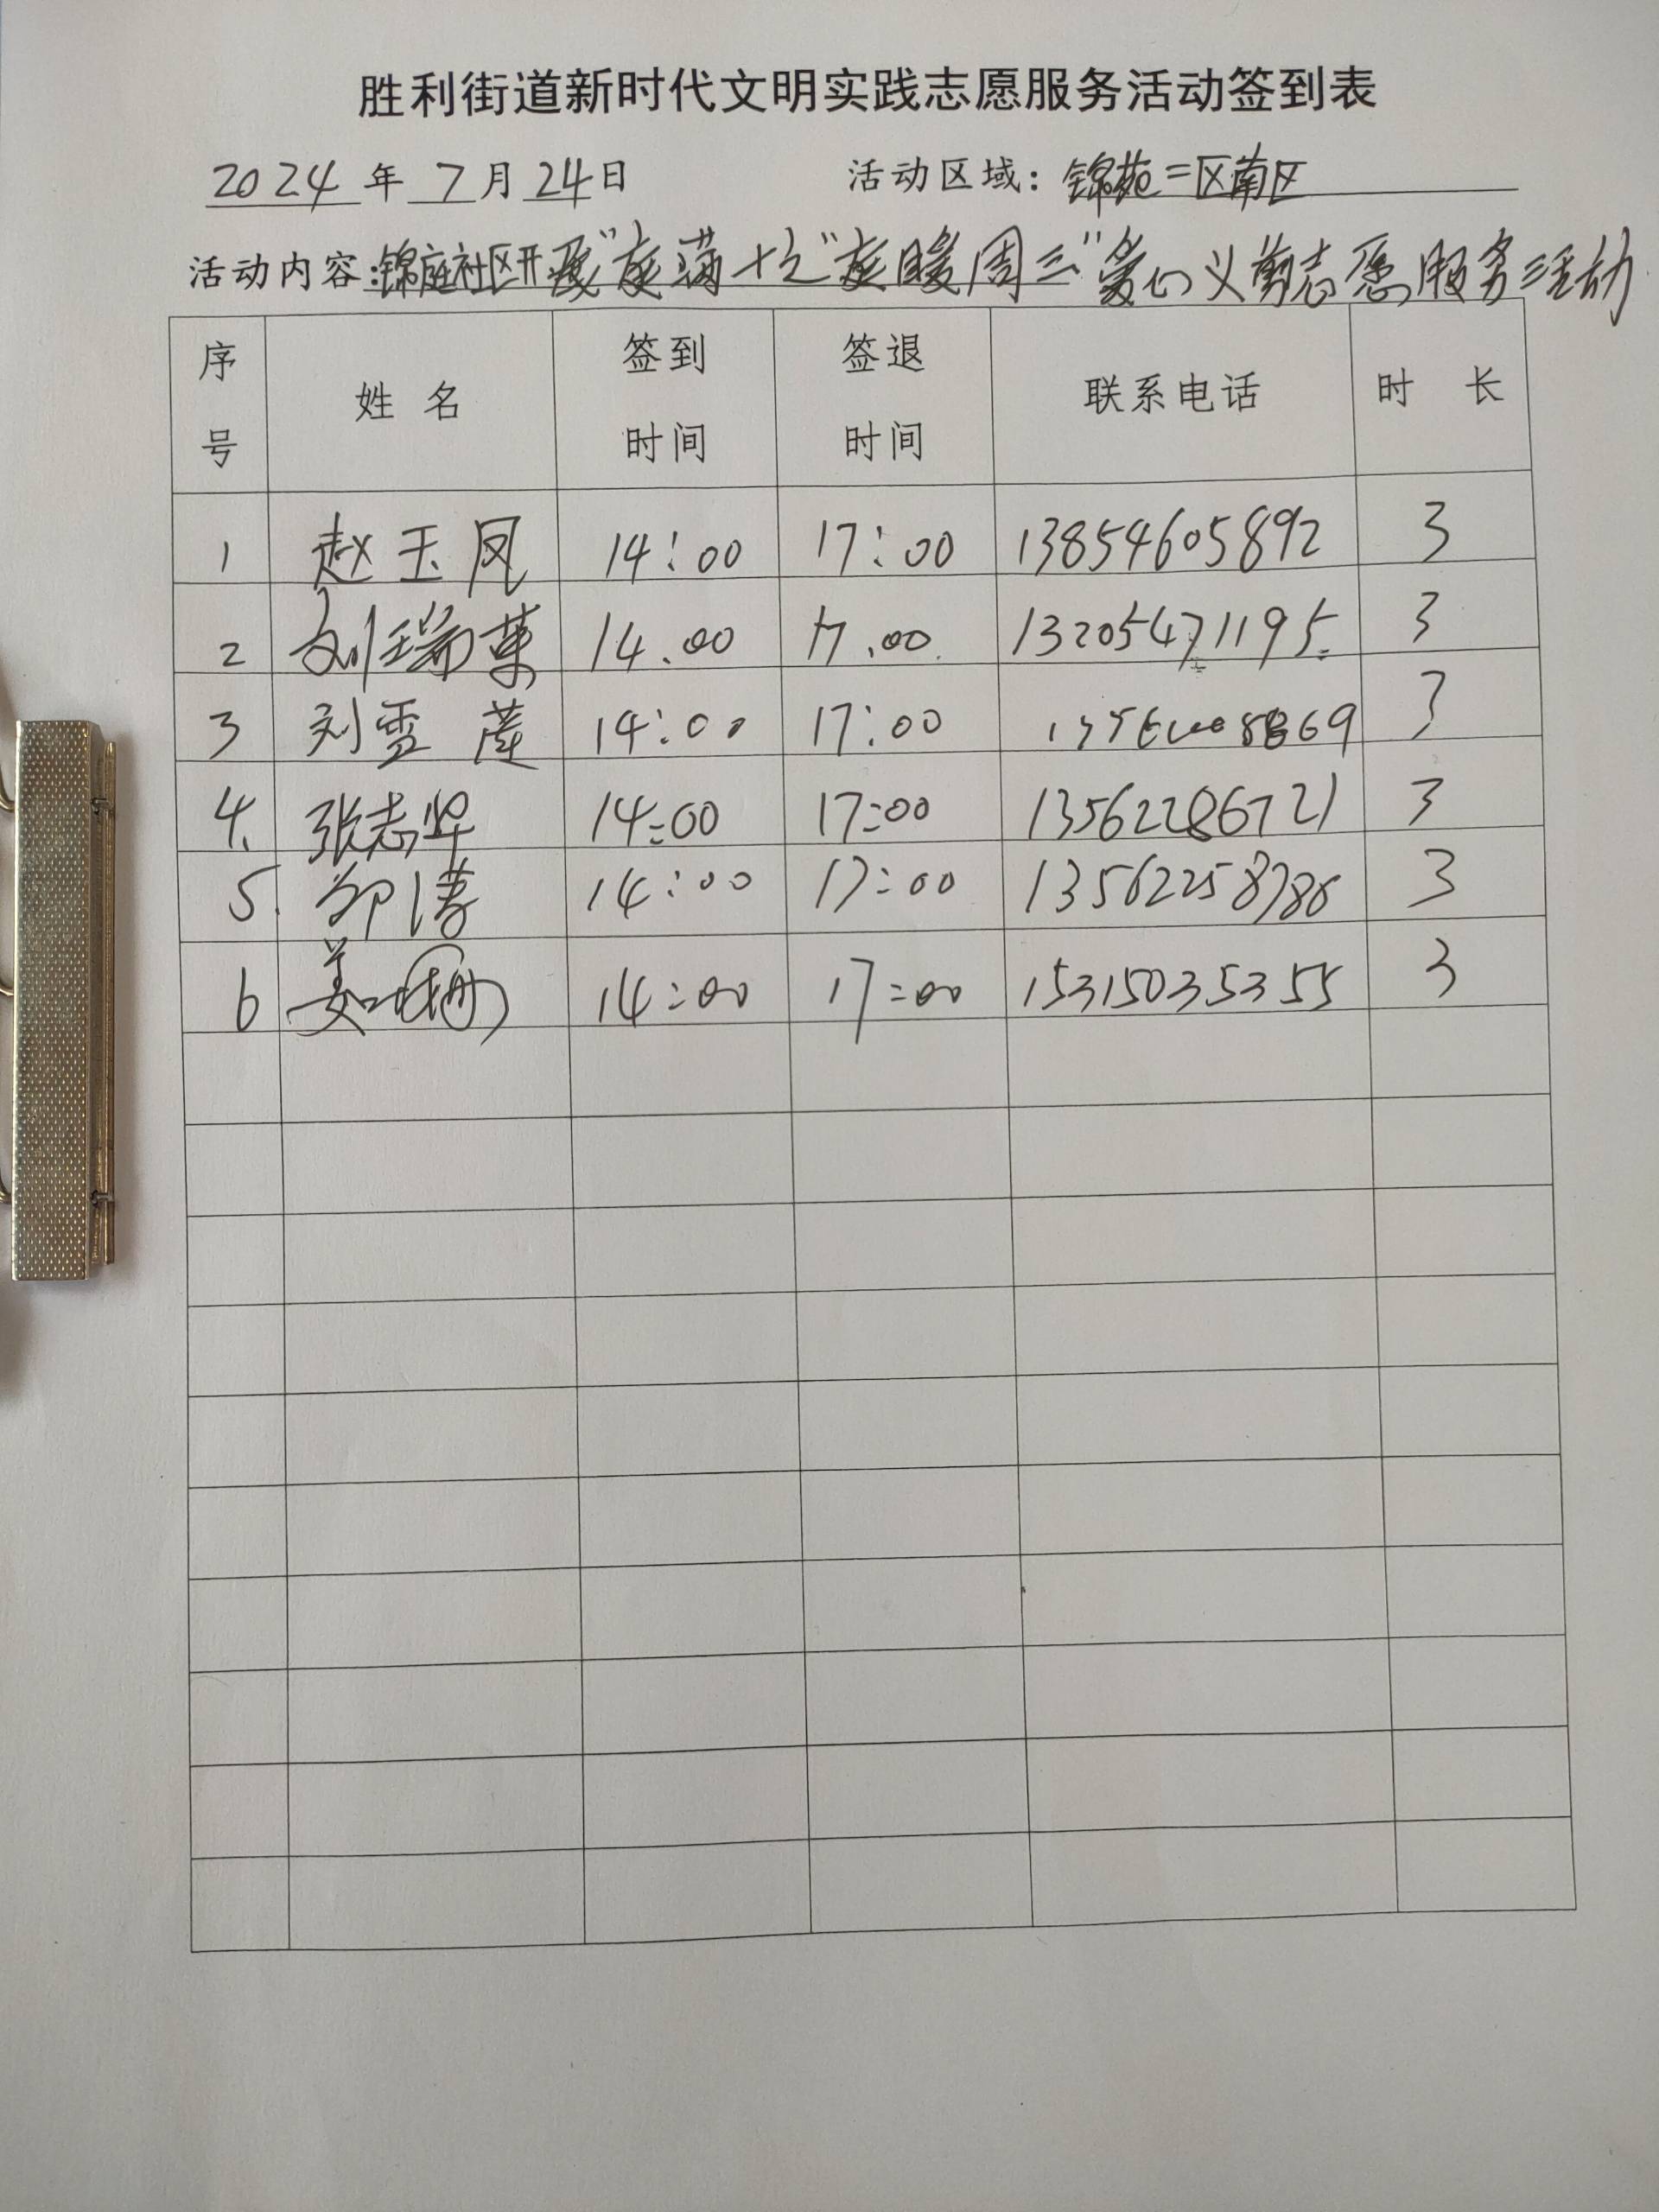 胜利街道新时代文明实践志愿服务活动签到表
2024年 7月 24日 活动区域：锦苑二区南区
活动内容：锦庭社区开展“庭满十之”庭暖周三”爱心义剪志愿服务活动
序号 姓名 签到时间 签退时间 联系电话 时长
1 赵玉凤 14:00 17:00 13854605892 3
2 刘瑞英 14.00 17.00 13205471195 3
3 刘雪莲 14:00 17:00 3
4. 张志华 14:00 17:00 13562286721 3
5. 14:00 17:00 13562258786 3
6 姜 14:00 17:00 15315035355 3